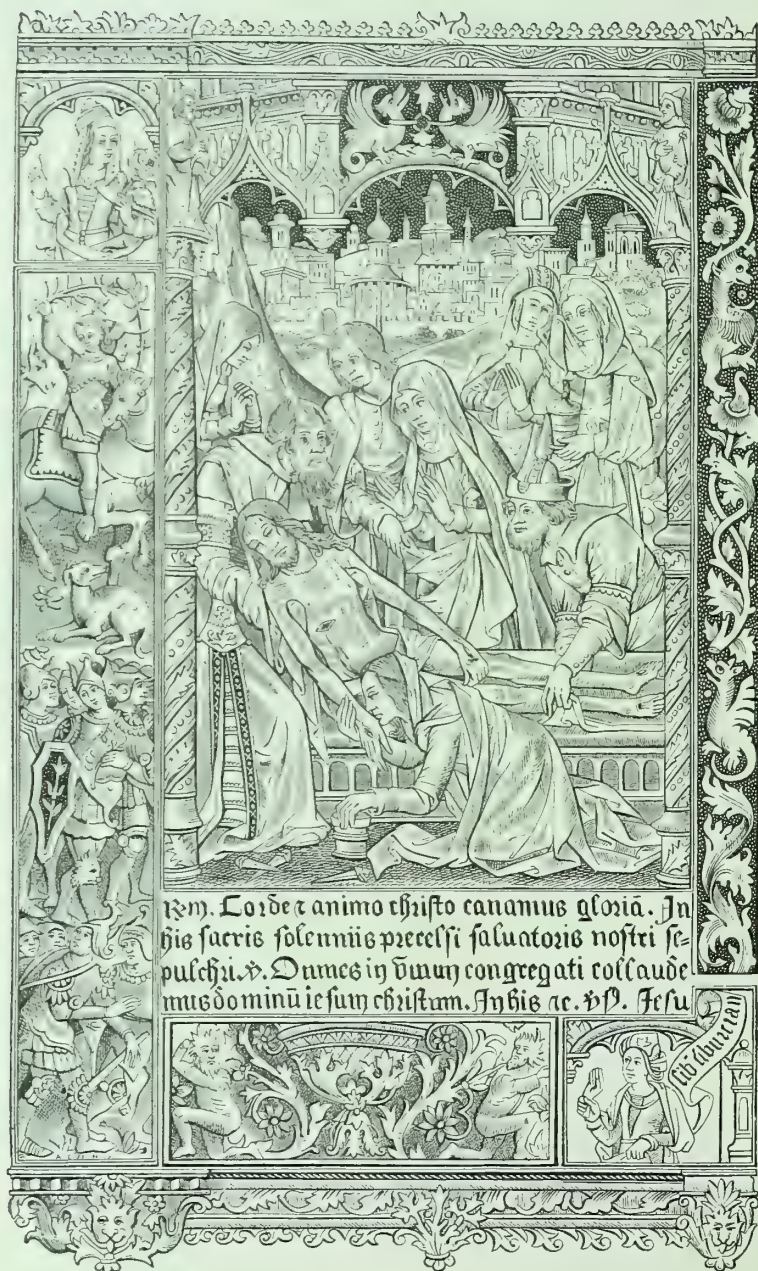 Rm. Corde ⁊ animo christo canamus gloriā. In
his sacris solenniis precelsi saluatoris nostri se-
pulchri. ℣. Omnes in vnum congregati collaude
mus dominū iesum christum. In his ⁊c. ℣s. Jesu